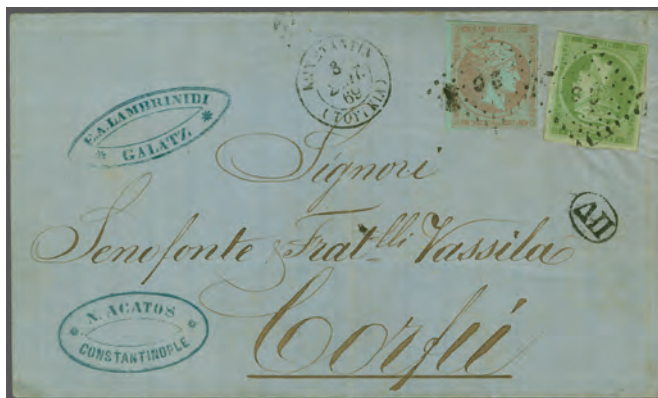 E.A. LAMBRINIDI
GALATZ
(ΤΟΥΡΚΙΑ)
69
Signori
Senofonte Fratlli Vassila
Corfú
ΔΠ
N. AGATOS
CONSTANTINOPLE